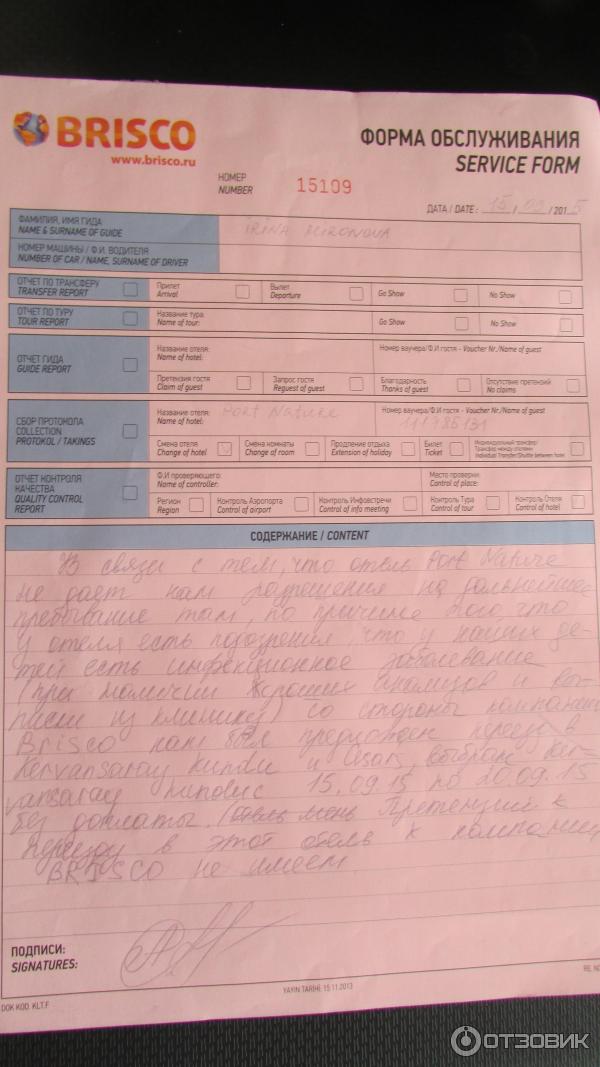 BRISCO
www.brisco.ru
ФОРМА ОБСЛУЖИВАНИЯ
SERVICE FORM
НОМЕР
NUMBER
15109
ДАТА / DATE: 15 / 09 / 2015
ФАМИЛИЯ, ИМЯ ГИДА
NAME & SURNAME OF GUIDE
IRINA MIRONOVA
НОМЕР МАШИНЫ / Ф.И. ВОДИТЕЛЯ
NUMBER OF CAR / NAME, SURNAME OF DRIVER
ОТЧЕТ ПО ТРАНСФЕРУ
TRANSFER REPORT
Прилет
Arrival
Вылет
Departure
Go Show
No Show
ОТЧЕТ ПО ТУРУ
TOUR REPORT
Название тура:
Name of tour:
Go Show
No Show
ОТЧЕТ ГИДА
GUIDE REPORT
Название отеля:
Name of hotel:
Номер ваучера/Ф.И гостя - Voucher Nr./Name of guest
Претензия гостя
Claim of guest
Запрос гостя
Reguest of guest
Благодарность
Thanks of guest
Отсутствие претензий
No claims
СБОР ПРОТОКОЛА
COLLECTION
PROTOKOL / TAKINGS
Название отеля:
Name of hotel:
Port Nature
Номер ваучера/Ф.И гостя - Voucher Nr./Name of guest
Смена отеля
Change of hotel
Смена комнаты
Change of room
Продление отдыха
Extension of holiday
Билет
Ticket
Индивидуальный трансфер/
Трансфер между отелями
Individual Transfer/Shuttle between hotel
ОТЧЕТ КОНТРОЛЯ
КАЧЕСТВА
QUALITY CONTROL
REPORT
Ф.И проверяющего:
Name of controller:
Место проверки:
Control of place:
Регион
Region
Контроль Аэропорта
Control of airport
Контроль Инфовстречи
Control of info meeting
Контроль Тура
Control of tour
Контроль Отеля
Control of hotel
СОДЕРЖАНИЕ / CONTENT
В связи с тем, что отель Port Nature
не дает нам разрешения на дальнейшее
пребывание там, по причине того что
у отеля есть подозрения, что у наших де-
тей есть инфекционное заболевание
(при наличии хороших анализов и вы-
писки из клиники) со стороны компании
Brisco нам был предложен переезд в
Kervansaray Kundu и, выбран Ker-
vansaray 15.09.15 по 20.09.15
без доплаты. Претензий к
переезду в этот отель к компании
BRISCO не имеем.
ПОДПИСИ:
SIGNATURES:
YAYIN TARİHİ: 15.11.2013
DOK KOD. KLT.F
RE. NO
ОТЗОВИК